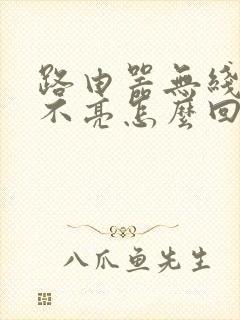 路由器無綫
不亮怎麼回
八爪鱼先生